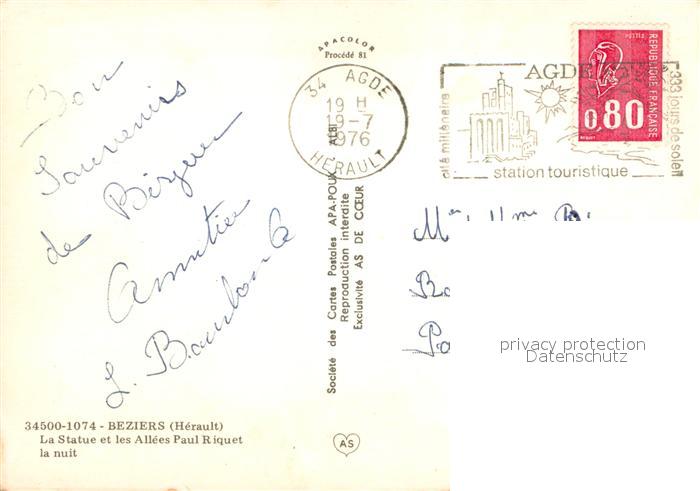 APACOLOR
Procédé 81
34 AGDE
19 H
19-7
1976
HÉRAULT
AGDE
cité millénaire
333 jours de soleil
station touristique
POSTES
REPUBLIQUE FRANÇAISE
0,80
BEQUET
Bon
Souvenirs
de
Amitiés
Société des Cartes Postales APA-POUX ALBI
Reproduction interdite
Exclusivité AS DE CŒUR
privacy protection
Datenschutz
34500-1074 - BEZIERS (Hérault)
La Statue et les Allées Paul Riquet
la nuit
AS